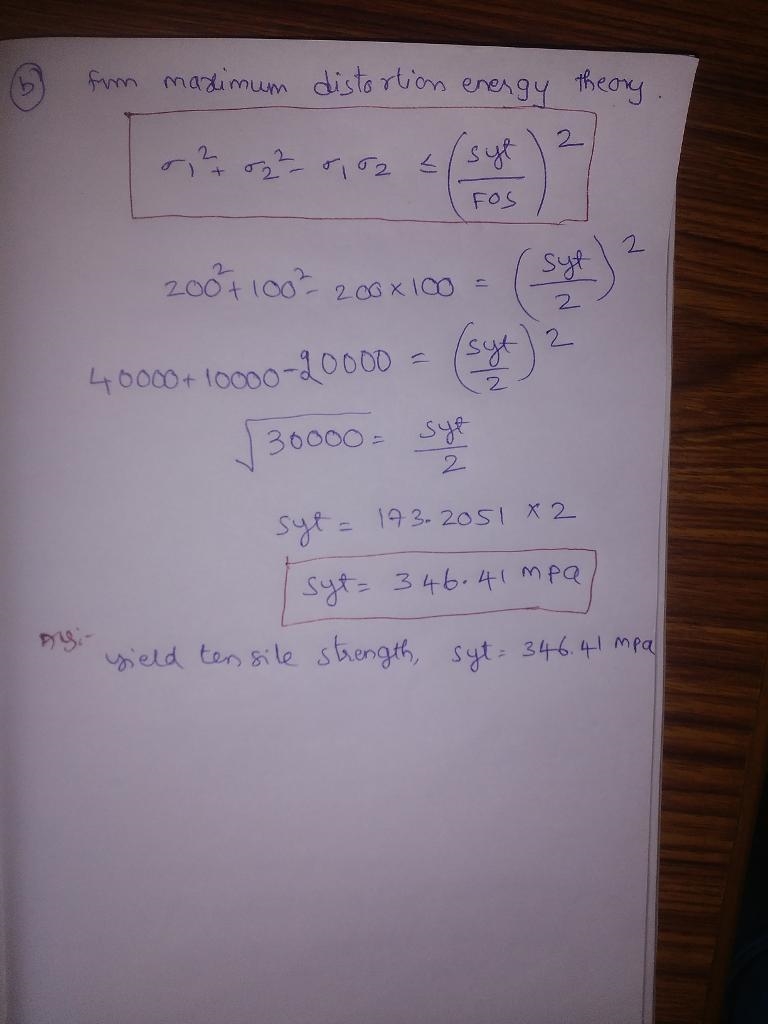 b) from maximum distortion energy theory.
σ1² + σ2² - σ1 σ2 ≤ (syt / FOS)²
200² + 100² - 200 × 100 = (syt / 2)²
40000 + 10000 - 20000 = (syt / 2)²
√30000 = syt / 2
syt = 173.2051 × 2
syt = 346.41 mpa
Ans:- yield tensile strength, syt = 346.41 mpa